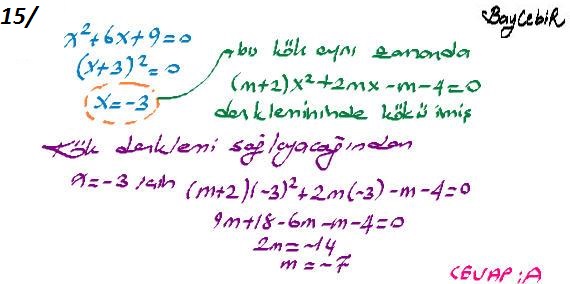 15/
BayCebiR
x²+6x+9=0
(x+3)²=0
x=-3
bu kök aynı zamanda
(m+2)x²+2mx-m-4=0
denkleminin de kökü imiş
Kök denklemi sağlayacağından
x=-3 için (m+2)(-3)²+2m(-3)-m-4=0
9m+18-6m-m-4=0
2m=-14
m=-7
CEVAP:A